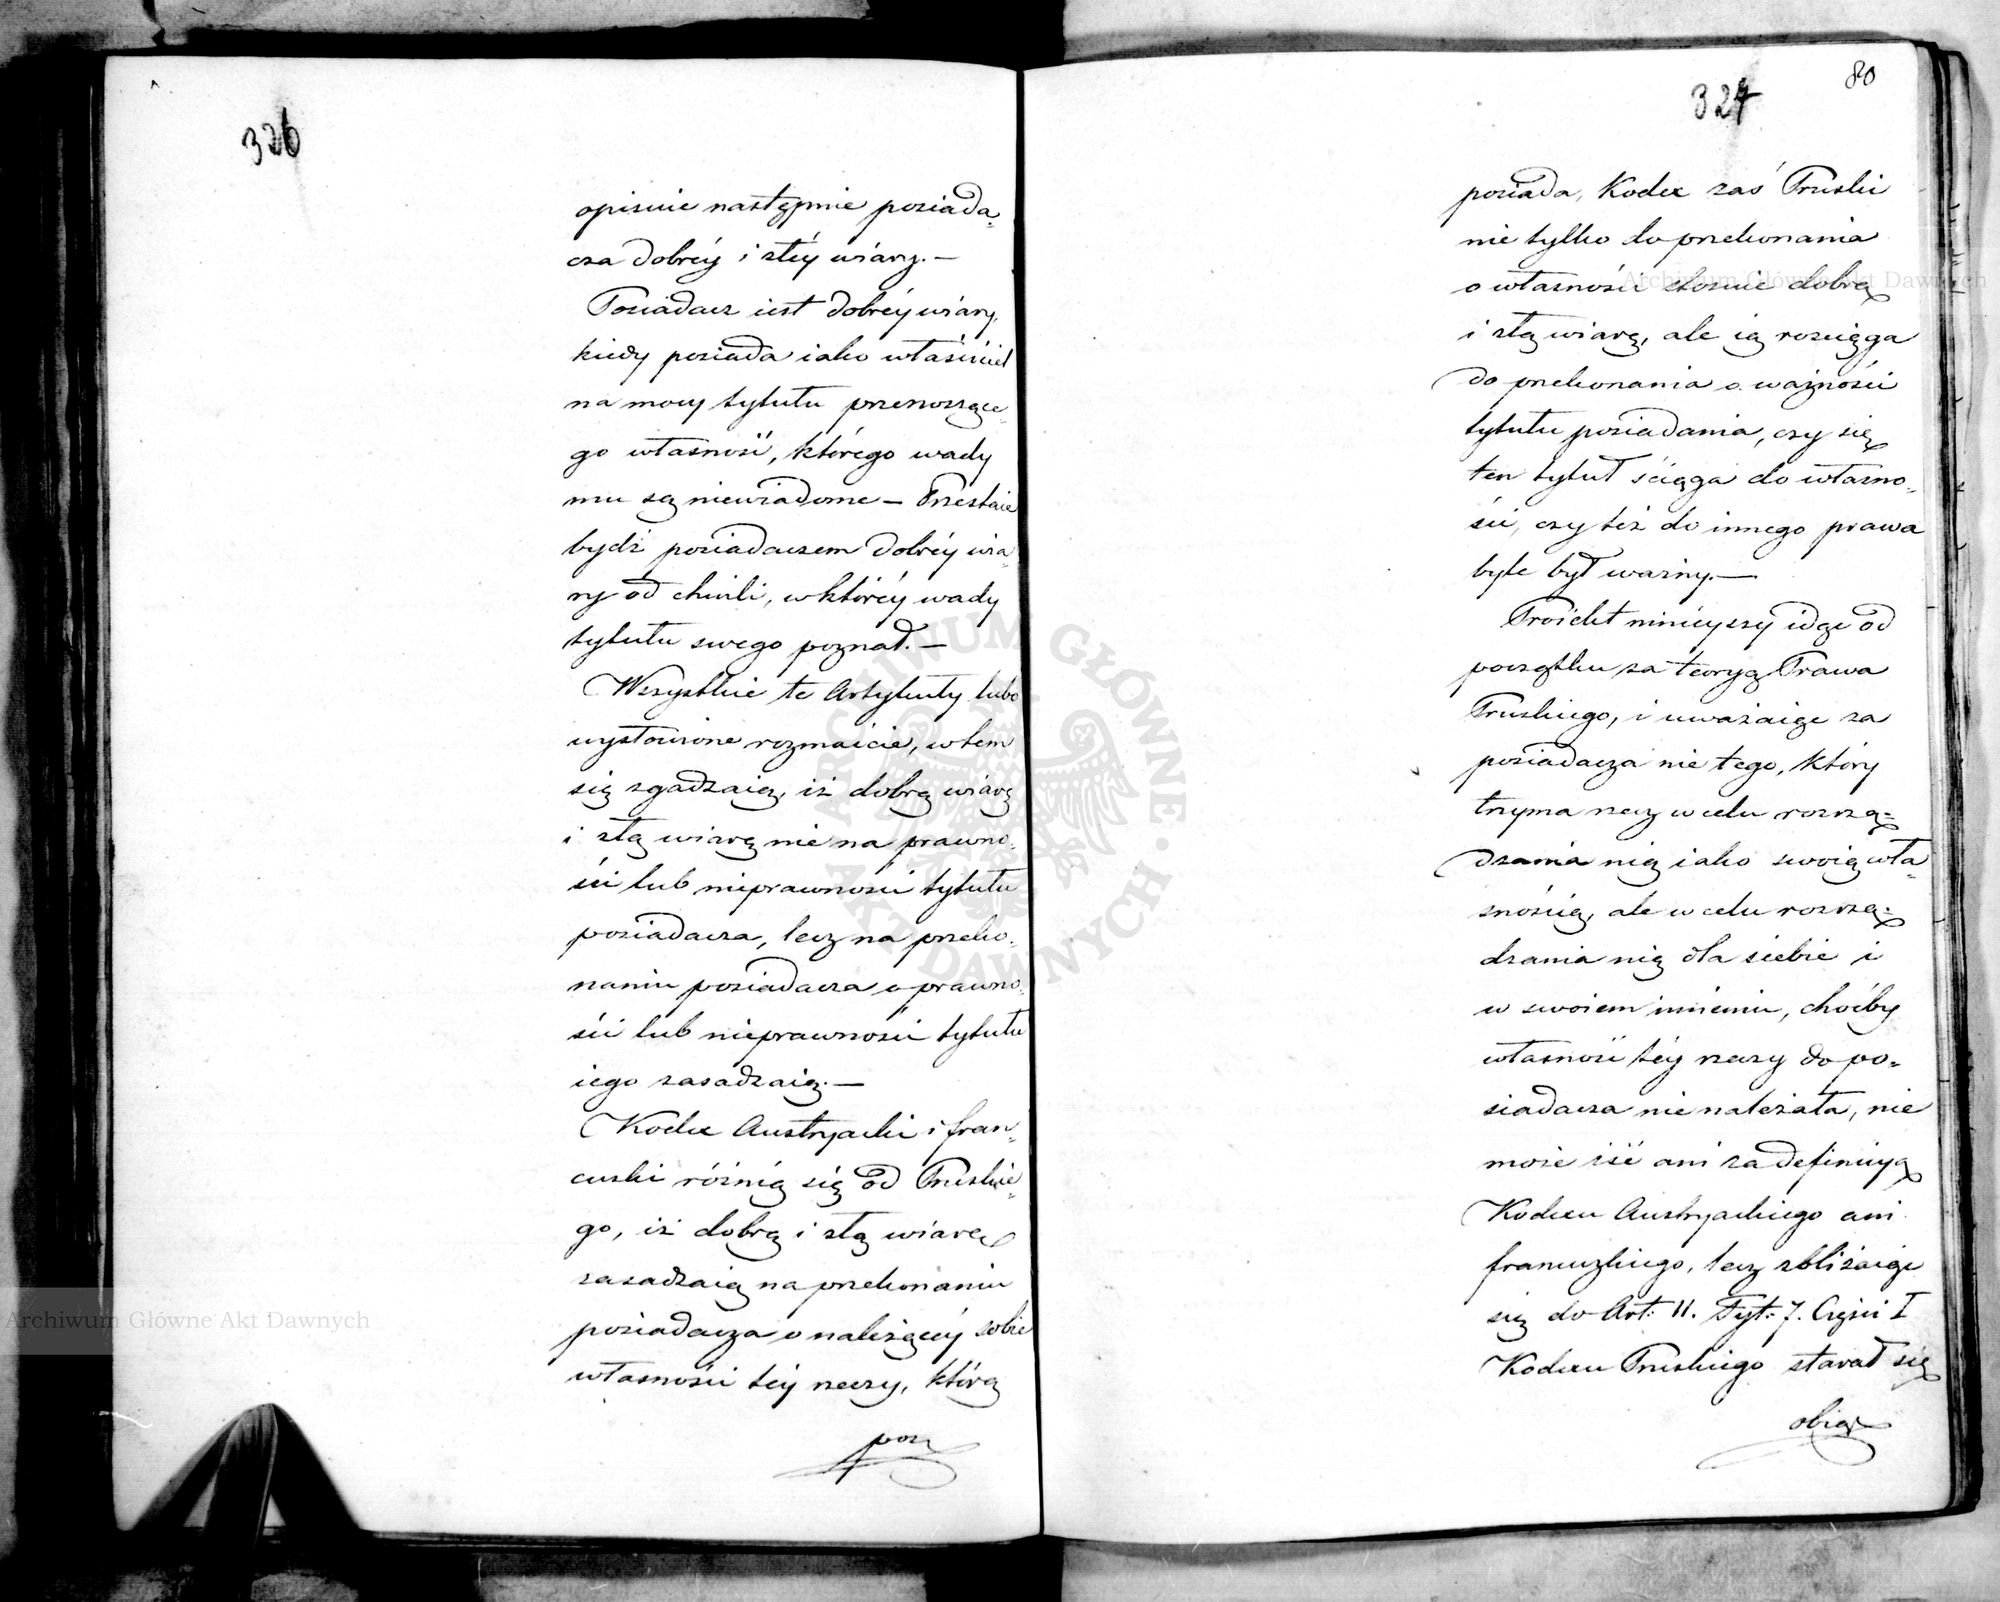 326
opisuie następnie posiada=
cza dobréy i złéy wiary. —
Posiadacz iest dobréy wiary,
kiedy posiada iako właściciel
na mocy tytułu przenoszące=
go własność, którego wady
mu są niewiadome — Przestaie
bydź posiadaczem dobréy wia=
ry od chwili, w któréy wady
tytułu swego poznał. —
Wszystkie te Artykuły lubo
wysłowione rozmaicie, w tem
się zgadzaią, iż dobrą wiarę
i złą wiarę nie na prawno=
ści lub nieprawności tytułu
posiadacza, lecz na przeko=
naniu posiadacza o prawno=
ści lub nieprawności tytułu
iego zasadzaią. —
Kodex Austryacki i fran=
cuski różnią się od Pruskie=
go, iż dobrą i złą wiarę
zasadzaią na przekonaniu
posiadacza o należącéy sobie
własności téy rzeczy, którą
posia
80
327
posiada, Kodex zaś Pruski
nie tylko do przekonania
o własności stosuie dobrą
i złą wiarę, ale ią rosciąga
do przekonania o ważności
tytułu posiadania, czy się
ten tytuł ściąga do własno=
ści, czy też do innego prawa
byle był ważny. —
Proiekt ninieyszy idąc od
początku za teoryą Prawa
Pruskiego, i uważaiąc za
posiadacza nie tego, który
trzyma rzecz w celu rozrzą=
dzania nią iako swoią wła=
snością, ale w celu rozrzą=
dzania nią dla siebie i
w swoiem imieniu, choćby
własność téy rzeczy do po=
siadacza nie należała, nie
może iść ani za definicyą
Kodexu Austryackiego ani
francuzkiego, lecz zbliżaiąc
się do Art: 11. Tyt: 7. Części I
Kodexu Pruskiego starał się
obiąć
Archiwum Główne Akt Dawnych
Archiwum Główne Akt Dawnych
ARCHIWUM GŁÓWNE · AKT DAWNYCH ·